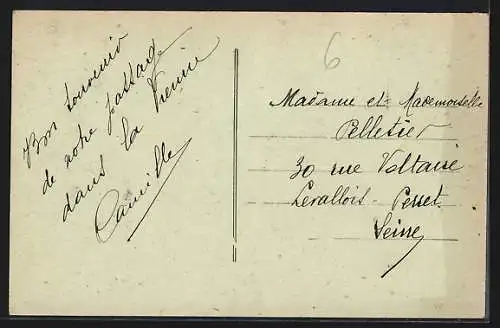 Bon souvenir
de notre passage
dans la Vienne
Camille
6
Madame et Mademoiselle
Pelletier
30 rue Voltaire
Levallois-Perret
Seine